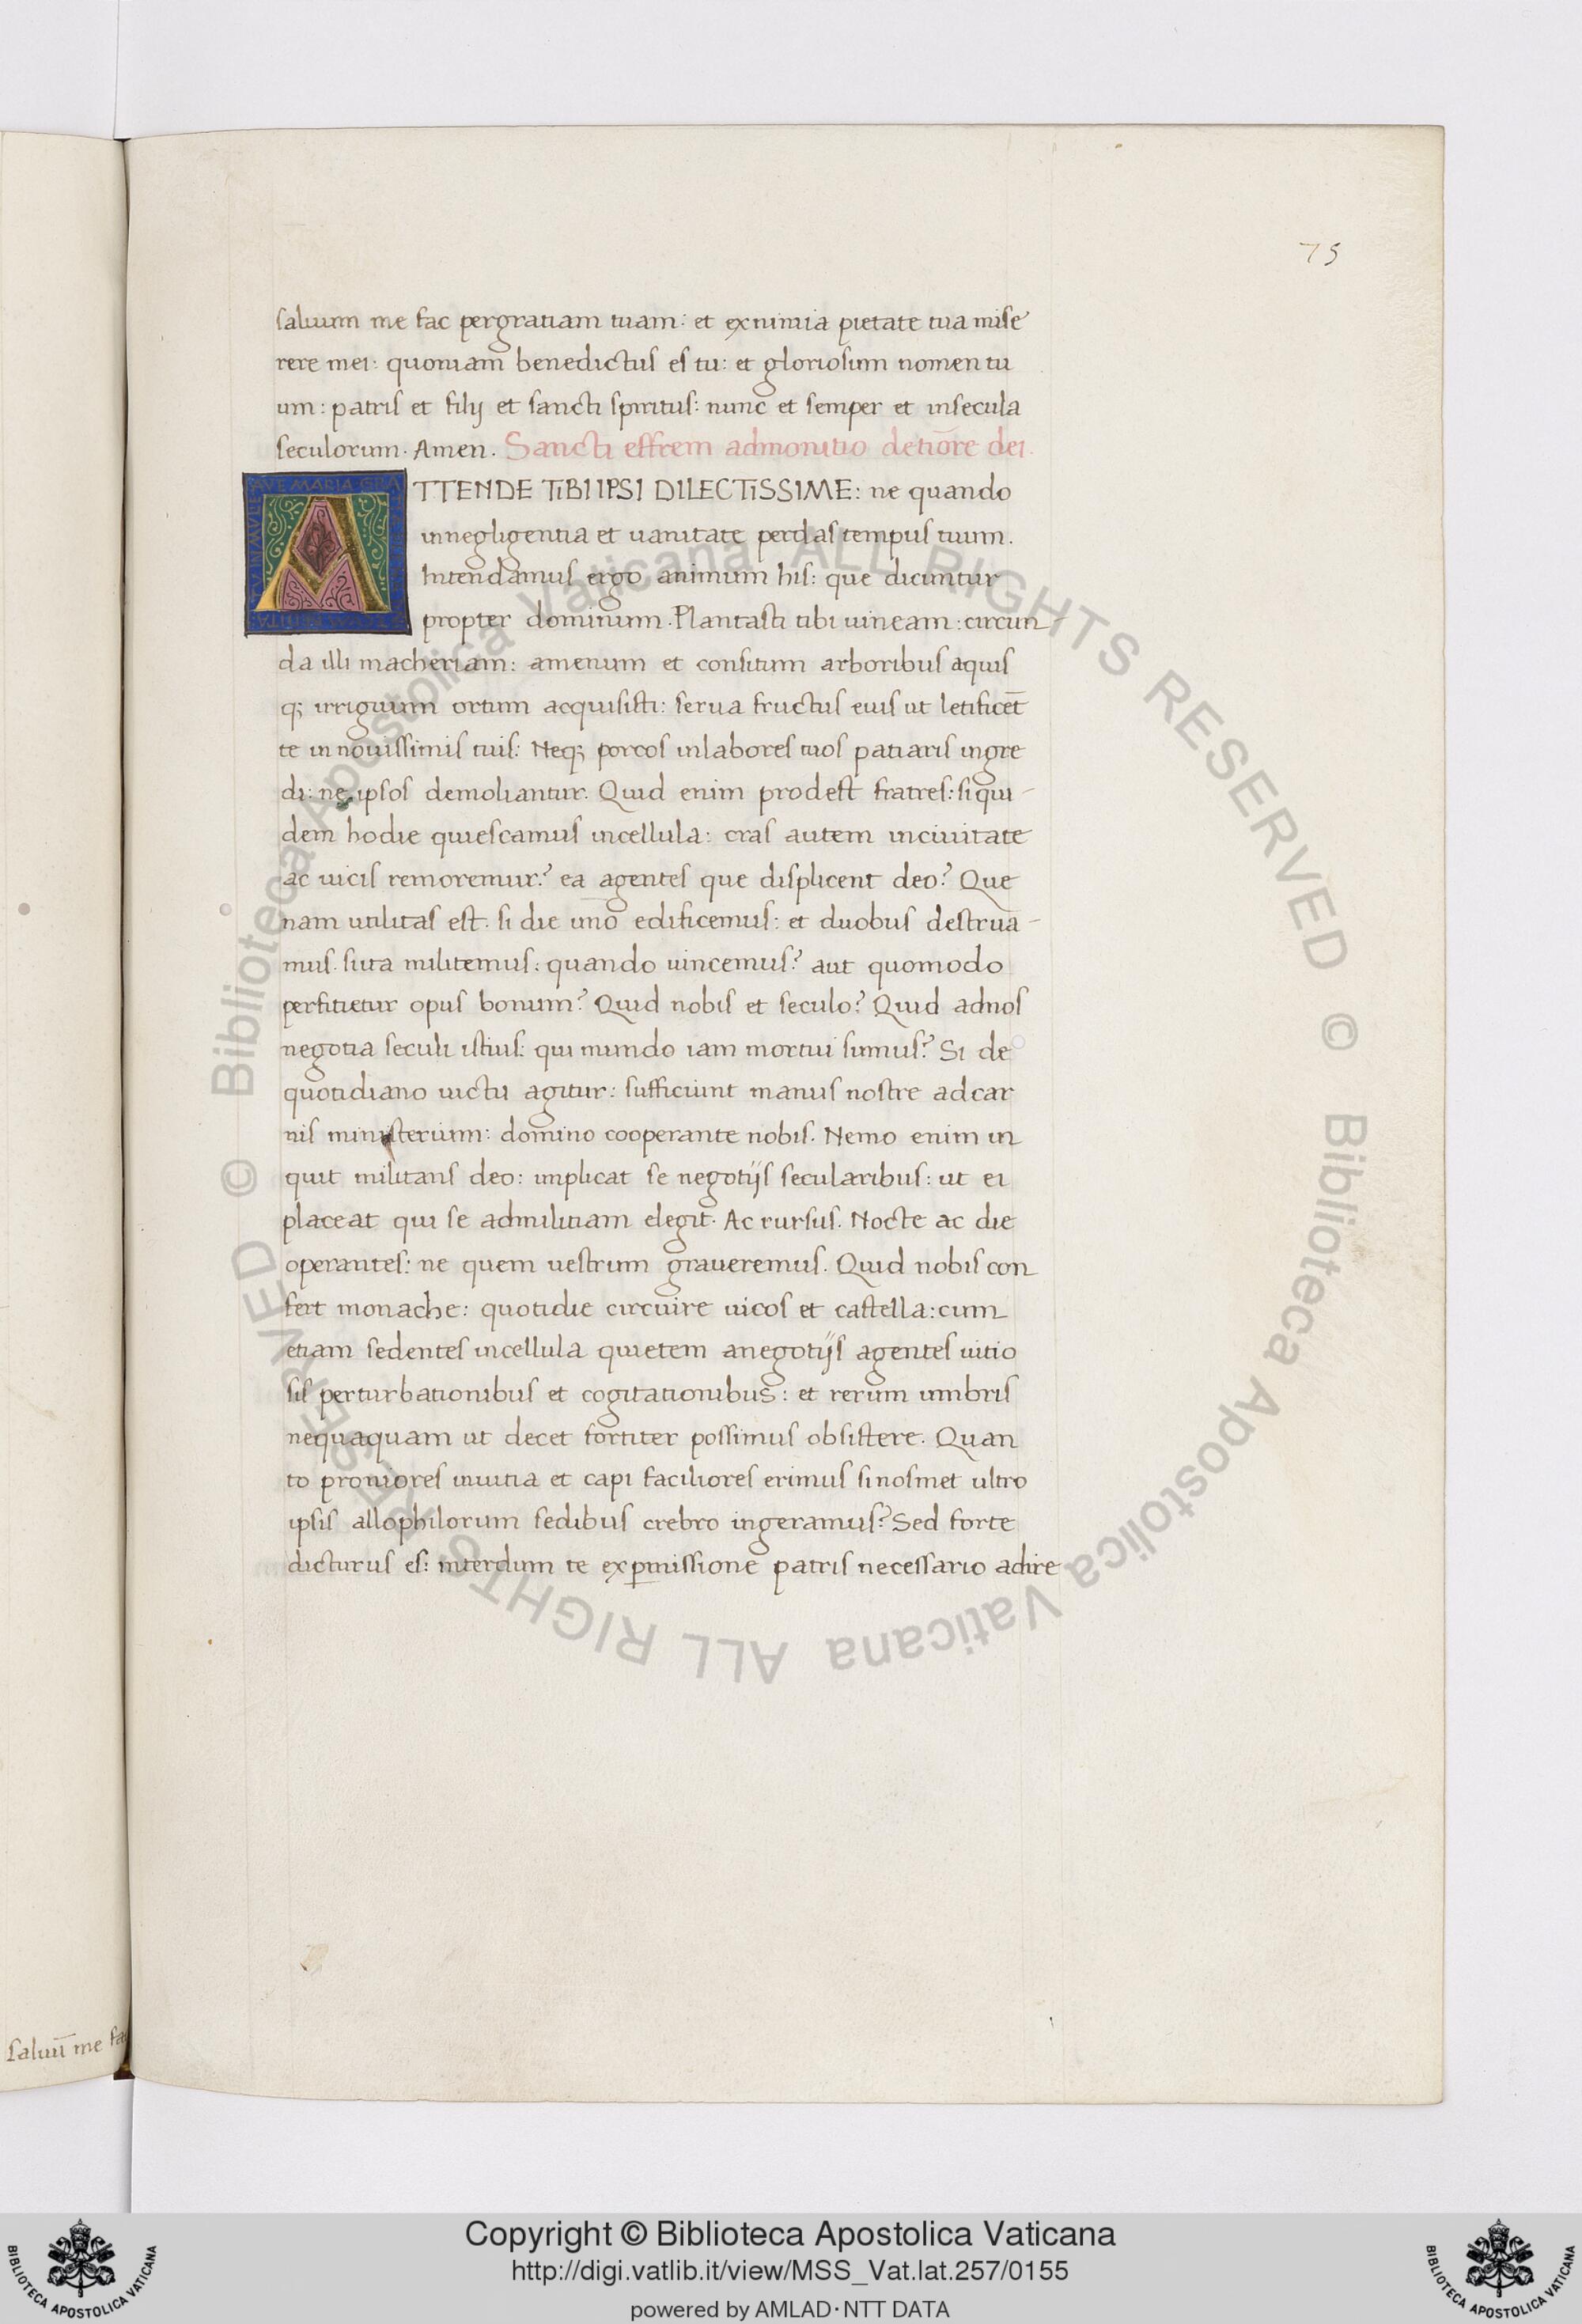 75
saluum me fac pergratiam tuam: et exnimia pietate tua mise
rere mei: quoniam benedictus es tu: et gloriosum nomen tu
um: patris et filij et sancti spiritus: nunc et semper et insecula
seculorum. Amen. Sancti effrem admonitio detiōre dei.
AVE MARIA GRA
ATTENDE TIBI IPSI DILECTISSIME: ne quando
innegligentia et uanitate perdas tempus tuum.
Intendamus ergo animum his: que dicuntur
propter dominum. Plantasti tibi uineam: circun
da illi macheriam: amenum et consitum arboribus aquis
q; irriguum ortum acquisisti: serua fructus eius ut letificet̄
te in nouissimis tuis: Neq; porcos inlabores tuos patiaris ingre
di: ne ipsos demoliantur. Quid enim prodest fratres: si qui-
dem hodie quiescamus incellula: cras autem inciuitate
ac uicis remoremur? ea agentes que displicent deo? Que
nam utilitas est. si die uno edificemus: et duobus destrua-
mus. siita militemus: quando uincemus? aut quomodo
perfitietur opus bonum? Quid nobis et seculo? Quid adnos
negotia seculi istius: qui mundo iam mortui sumus? Si de
quotidiano uictu agitur: sufficiunt manus nostre adcar
nis ministerium: domino cooperante nobis. Nemo enim in
quit militans deo: implicat se negotijs secularibus: ut ei
placeat qui se admilitiam elegit. Ac rursus. Nocte ac die
operantes: ne quem uestrum graueremus. Quid nobis con
fert monache: quotidie circuire uicos et castella: cum
etiam sedentes incellula quietem anegotijs agentes uitio
sis perturbationibus et cogitationibus: et rerum umbris
nequaquam ut decet fortiter possimus obsistere. Quan
to proniores inuitia et capi faciliores erimus si nosmet ultro
ipsis allophilorum sedibus crebro ingeramus? Sed forte
dicturus es: interdum te exꝑmissione patris necessario adire
saluū me fa
© Biblioteca Apostolica Vaticana ALL RIGHTS RESERVED © Biblioteca Apostolica Vaticana ALL RIGHTS RESERVED
Copyright © Biblioteca Apostolica Vaticana
http://digi.vatlib.it/view/MSS_Vat.lat.257/0155
powered by AMLAD·NTT DATA
BIBLIOTECA APOSTOLICA VATICANA
BIBLIOTECA APOSTOLICA VATICANA